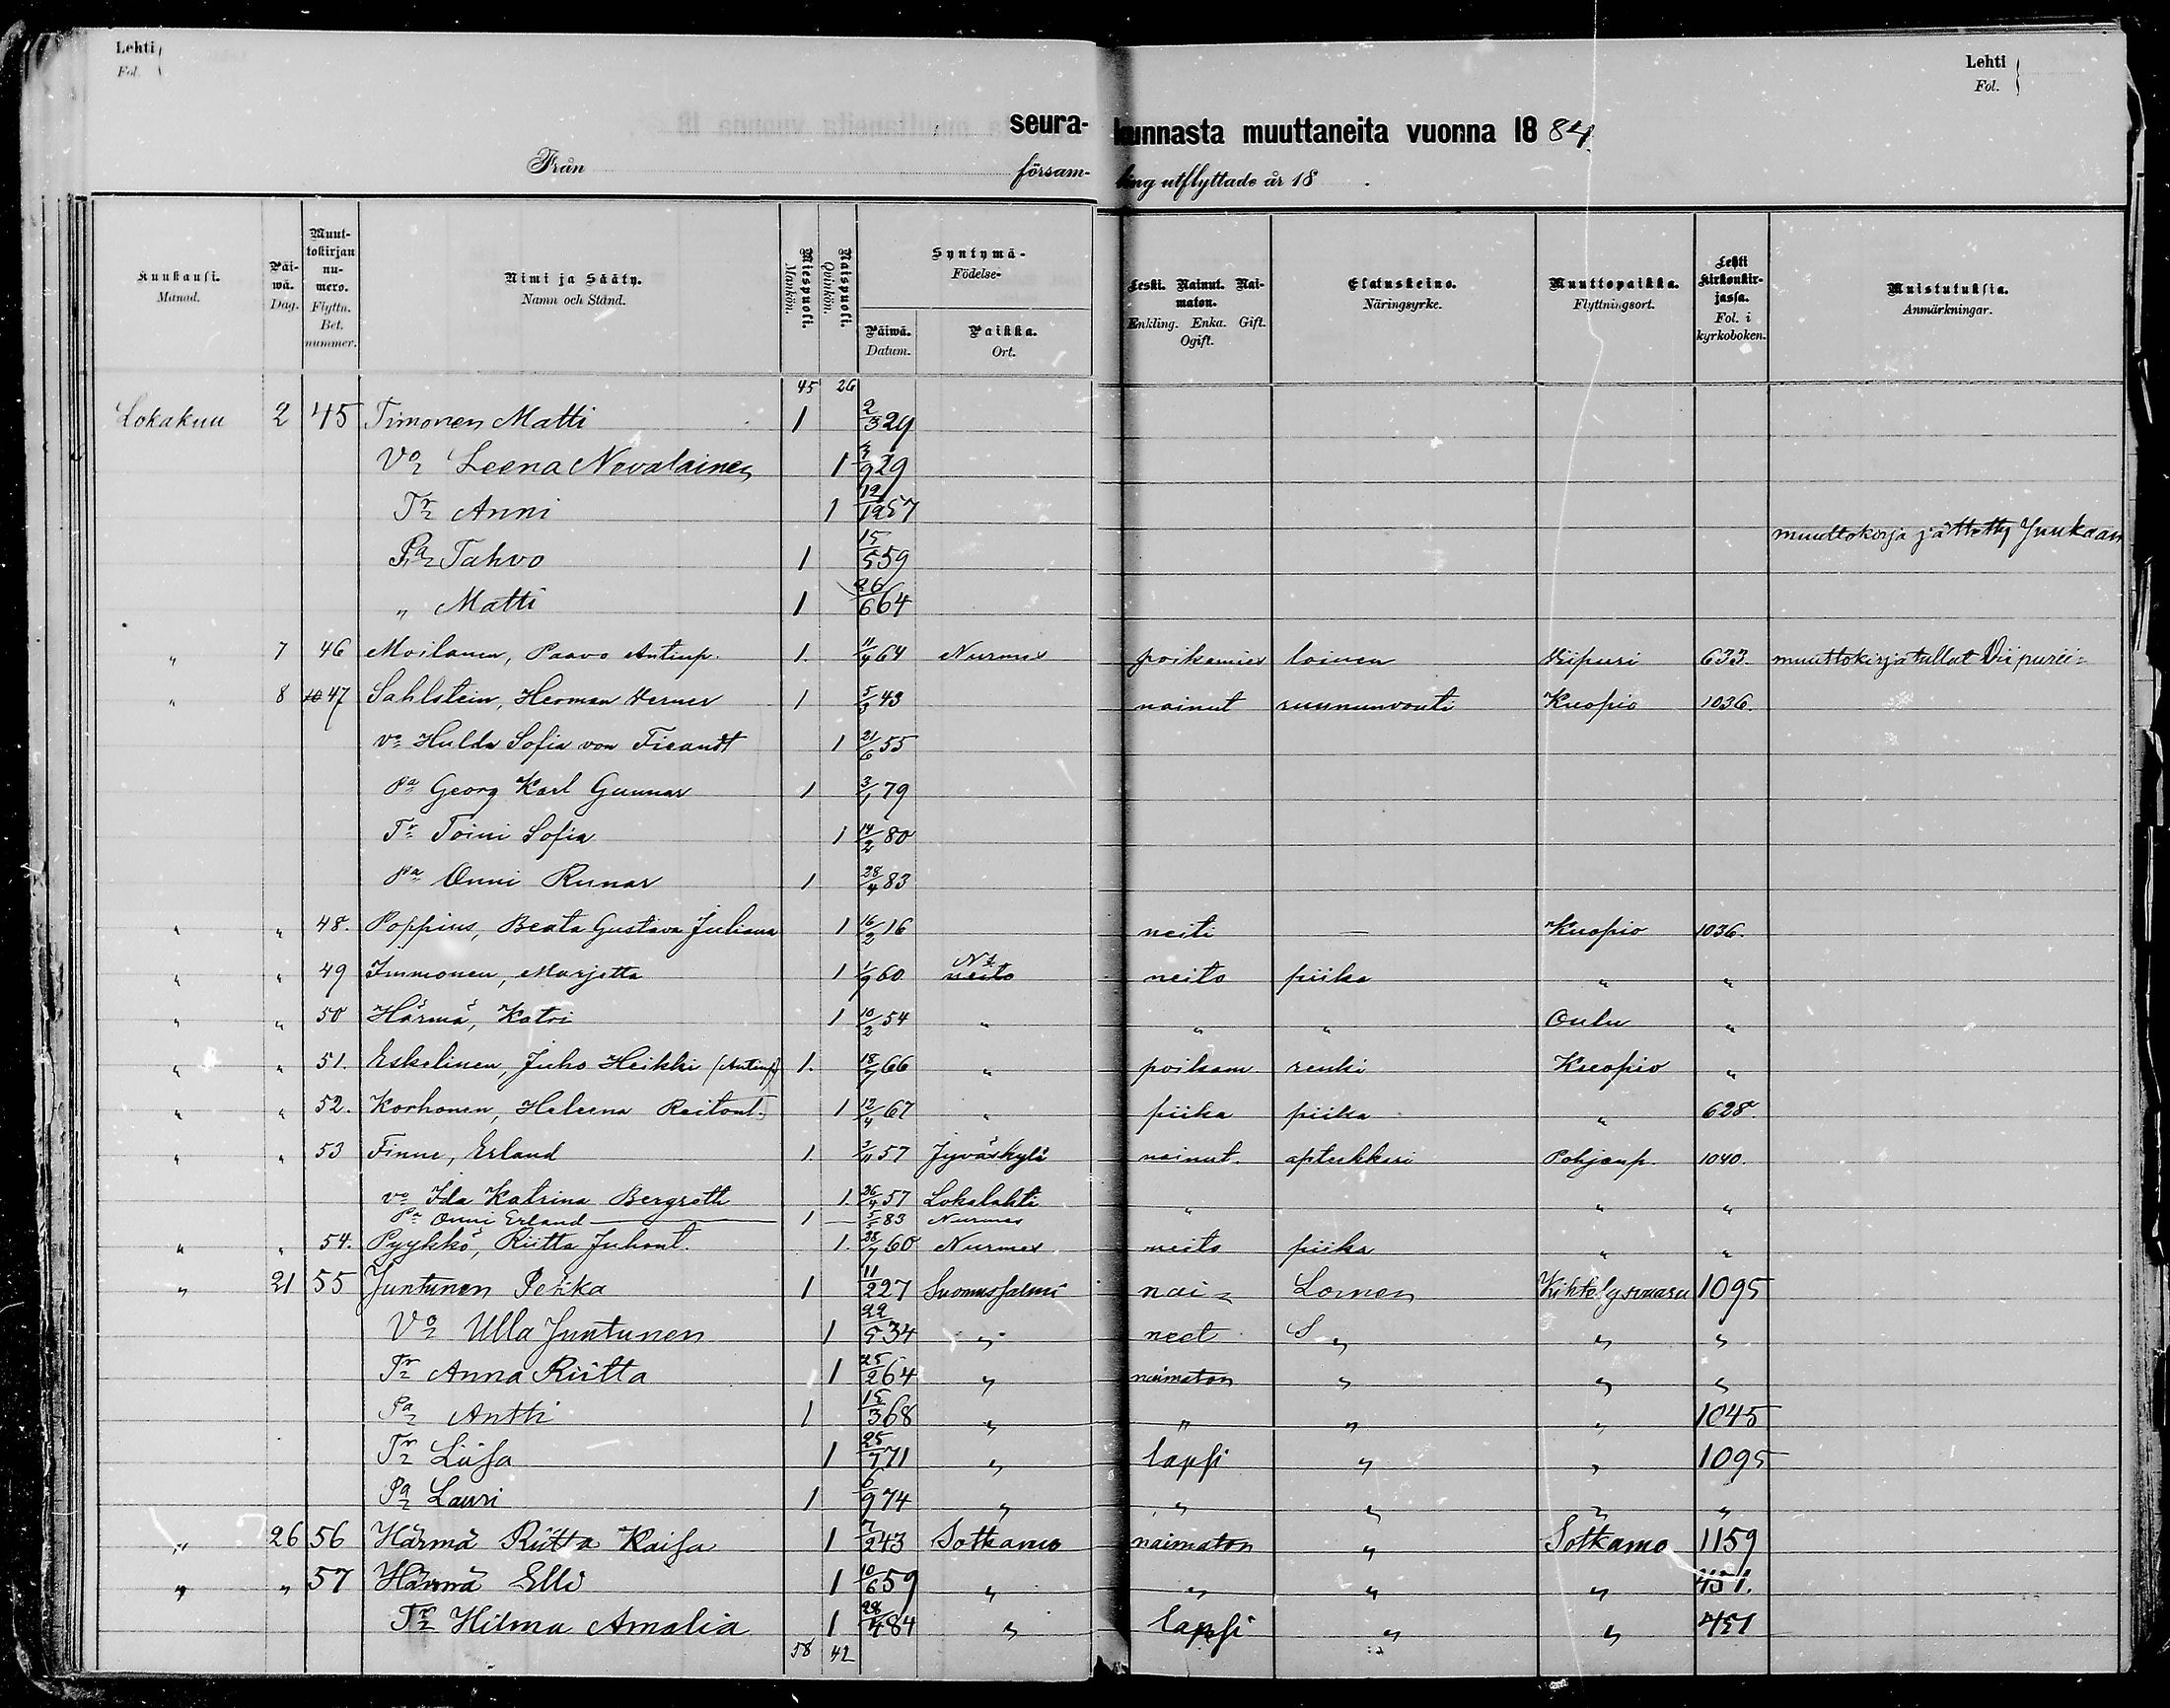 Lehti Fol. Lehti Fol.
seura- kunnasta muuttaneita vuonna 1884.
Från försam- ling utflyttade år 18 .
Kuukausi. Månad. Päi-wä. Dag. Muut-tokirjan nu-mero. Flyttn. Bet. nummer. Nimi ja Sääty. Namn och Stånd. Miespuoli. Mankön. Naispuoli. Qvinkön. Syntymä- Födelse- Päiwä. Datum. Paikka. Ort. Leski. Nainut. Nai-maton. Enkling. Enka. Gift. Ogift. Elatuskeino. Näringsyrke. Muuttopaikka. Flyttningsort. Lehti Kirkonkir-jassa. Fol. i kyrkoboken. Muistutuksia. Anmärkningar.
45 26
Lokakuu 2 45 Timonen Matti 1 2/3 29
Vo Leena Nevalainen 1 /9 29
Tr Anni 1 12/12 57
muuttokirja jätetty Juukaan
Pa Tahvo 1 15/5 59
„ Matti 1 26/6 64
„ 7 46 Moilanen, Paavo Antinp. 1. 11/4 64 Nurmes poikamies loinen Viipuri 633. muuttokirja tullut Viipurii=
„ 8 47 Sahlstein, Herman Verner 1 5/3 43 nainut ruununvouti Kuopio 1036.
vo Hulda Sofia von Fieandt 1 21/6 55
Pa Georg Karl Gunnar 1 3/1 79
Tr Toini Sofia 1 14/2 80
Pa Onni Runar 1 28/4 83
„ „ 48. Poppius, Beata Gustava Juliana 1 16/2 16 neiti — Kuopio 1036.
„ „ 49 Immonen, Marjetta 1 1/9 60 neito neito piika „ „
„ „ 50 Härmä, Katri 1 10/2 54 „ „ „ Oulu „
„ „ 51. Eskelinen, Juho Heikki (Antinp) 1. 18/7 66 „ poikam renki Kuopio „
„ „ 52. Korhonen, Heleena Reitont. 1 12/4 67 „ piika piika „ 628.
„ „ 53 Finne, Erland 1. /11 57 Jyväskylä nainut. aptekkari Pohjanp. 1040.
vo Ida Katrina Bergroth 1. 26/4 57 Lokalahti „ „ „
Pa Onni Erland — 1 — 5/5 83 Nurmes
„ „ 54. Pyykkö, Riitta Juhont. 1. 28/7 60 Nurmes neito piika „ „
„ 21 55 Juntunen Pekka 1 11/2 27 Suomussalmi nai= Loinen Kihtelysvaara 1095
Vo Ulla Juntunen 1 22/5 34 „ neet S „ „ „
Tr Anna Riitta 1 25/2 64 „ naimaton „ „ „
Pa Antti 1 15/3 68 „ „ „ „ 1045
Tr Liisa 1 25/7 71 „ lapsi „ „ 1095
Pa Lauri 1 6/9 74 „ „ „ „ „
„ 26 56 Härmä Riitta Kaisa 1 7/2 43 Sotkamo naimaton „ Sotkamo 1159
„ „ 57 Härmä Elli 1 10/6 59 „ „ „ „ 451.
Tr Hilma Amalia 1 28/4 84 „ lapsi „ „ 451
58 42